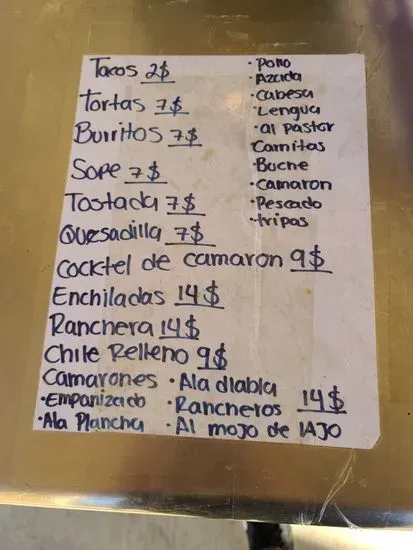 Tacos 2$
Tortas 7$
Burritos 7$
Sope 7$
Tostada 7$
Quesadilla 7$
Cocktel de camaron 9$
Enchiladas 14$
Ranchera 14$
Chile Relleno 9$
Camarones
• Empanizado
• Ala Plancha
• Ala diabla
• Rancheros 14$
• Al mojo de lAJO
• Pollo
• Azada
• Cabesa
• Lengua
• al pastor
Carnitas
• Buche
• camaron
• Pescado
• tripas